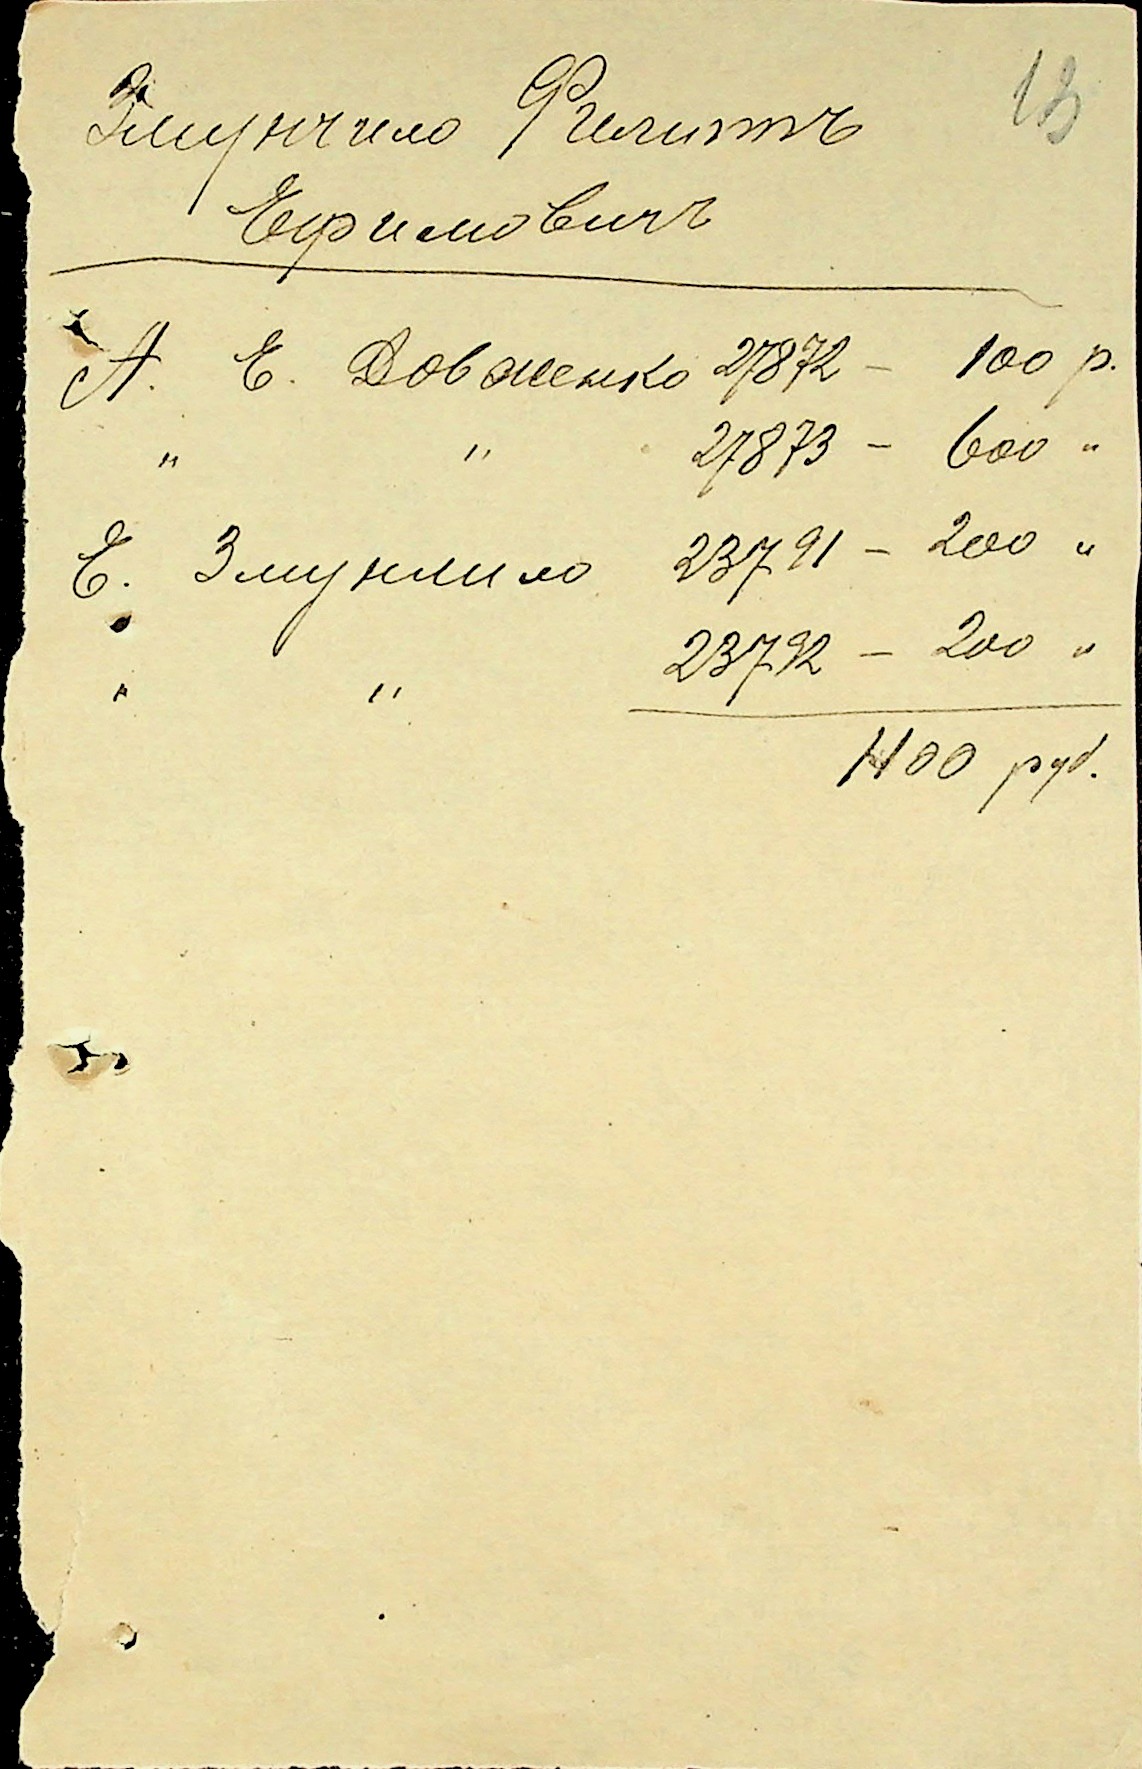 13
Змунчило Филиппъ
Ефимовичъ
А. Е. Довженко 27872 – 100 р.
" " 27873 – 600 "
Е. Змунчило 23791 – 200 "
" " 23792 – 200 "
1100 руб.